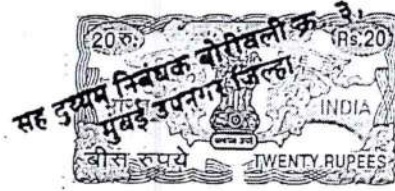 20 रु.
Rs.20
सह दुय्यम निबंधक बोरीवली क्र ३,
मुंबई उपनगर जिल्हा
INDIA
बीस रुपये
TWENTY RUPEES